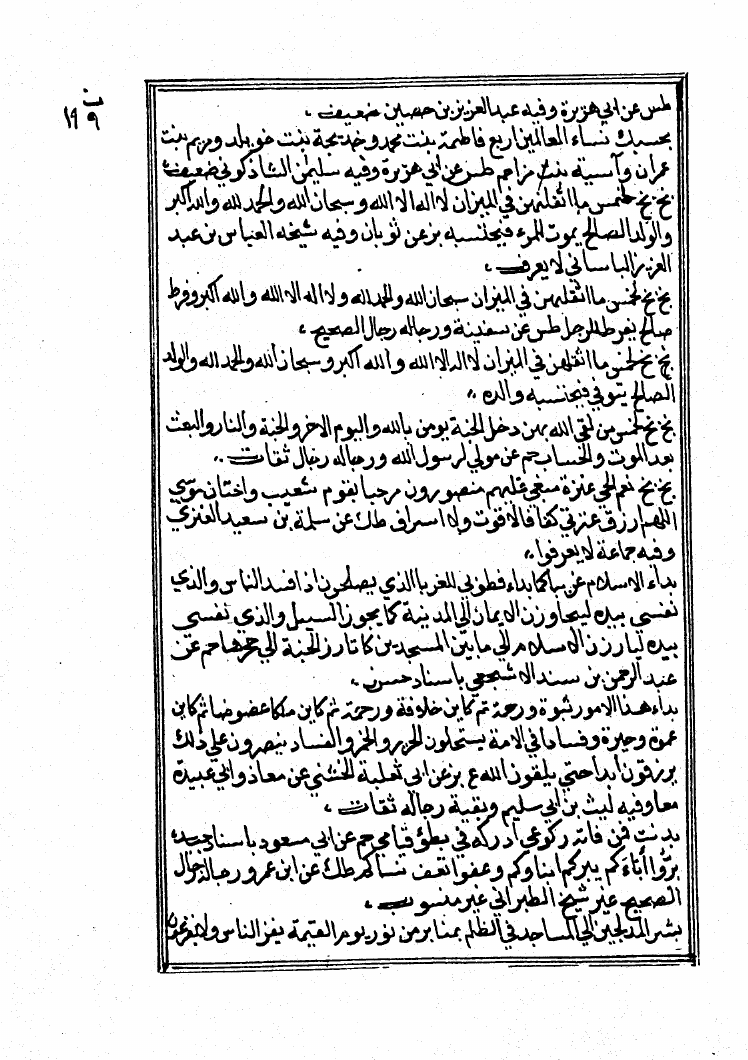 ب
٩ ١٩
طس عن ابي هريرة وفيه عبد العزيز بن حصين ضعيف .
بحسبك نساء العالمين اربع فاطمة بنت محمد وخديجة بنت خويلد ومريم بنت
عمران وآسية بنت مزاحم طس عن ابي هريرة وفيه سليمن الشاذكوني ضعيف
بخ بخ لخمس ما اثقلهن في الميزان لا اله الا الله وسبحان الله والحمد لله والله اكبر
والولد الصالح يموت للمرء فيحتسبه بز عن ثوبان وفيه شيخه العباس بن عبد
العزيز الباساني لا يعرف .
بخ بخ لخمس ما اثقلهن في الميزان سبحان الله والحمد لله ولا اله الا الله والله اكبر وفرط
صالح يفرط للرجل طس عن سفينة ورجاله رجال الصحيح .
بخ بخ لخمس ما اثقلهن في الميزان لا اله الا الله والله اكبر وسبحان الله والحمد لله والولد
الصالح يتوفى فيحتسبه والده .
بخ بخ لخمس من لقي الله بهن دخل الجنة يومن بالله واليوم الاخر والجنة والنار والبعث
بعد الموت والحساب حم عن مولي لرسول الله ورجاله رجال ثقات .
بخ بخ نعم الحي عنزة مبغي عليهم منصورون مرحبا بقوم شعيب واختان موسي
اللهم ارزق عنزة كفافا لا قوت ولا اسراف طك عن سلمة بن سعيد العنزي
وفيه جماعة لا يعرفوا .
بداء الاسلام غريبا كما بداء فطوبي للغربا الذي يصلحون اذا فسد الناس والذي
نفسي بيده ليجاوزن الايمان الي المدينة كما يجوز السيل والذي نفسي
بيده ليارزن الاسلام الي ما بين المسجدين كما تارز الحية الي جحرها حم عن
عبد الرحمن بن سند الاشجعي باسناد حسن .
بداء هذا الامر نبوة ورحمة ثم كاين خلافة ورحمة ثم كاين ملكا عضوضا ثم كاين
عموة وجبرة وفسادا في الامة يستحلون الحرير والخمر والفساد ينصرون علي ذلك
يرزقون ابدا حتي يلقون الله ع بز عن ابي ثعلبة الخشني عن معاذ وابي عبيدة
معا وفيه ليث بن ابي سليم وبقية رجاله ثقات .
بدنت فمن فاته ركوعي ادركه في بطؤ قيامي حم عن ابي مسعود باسناد جيد
بروا آباءكم يبركم ابناوكم وعفوا تعف نساكم طك عن ابن عمر ورجاله رجال
الصحيح غير شيخ الطبراني غير منسوب .
بشر المدلجين الي المساجد في الظلم بمنابر من نور يوم القيمة يفزع الناس ولا يفزعون